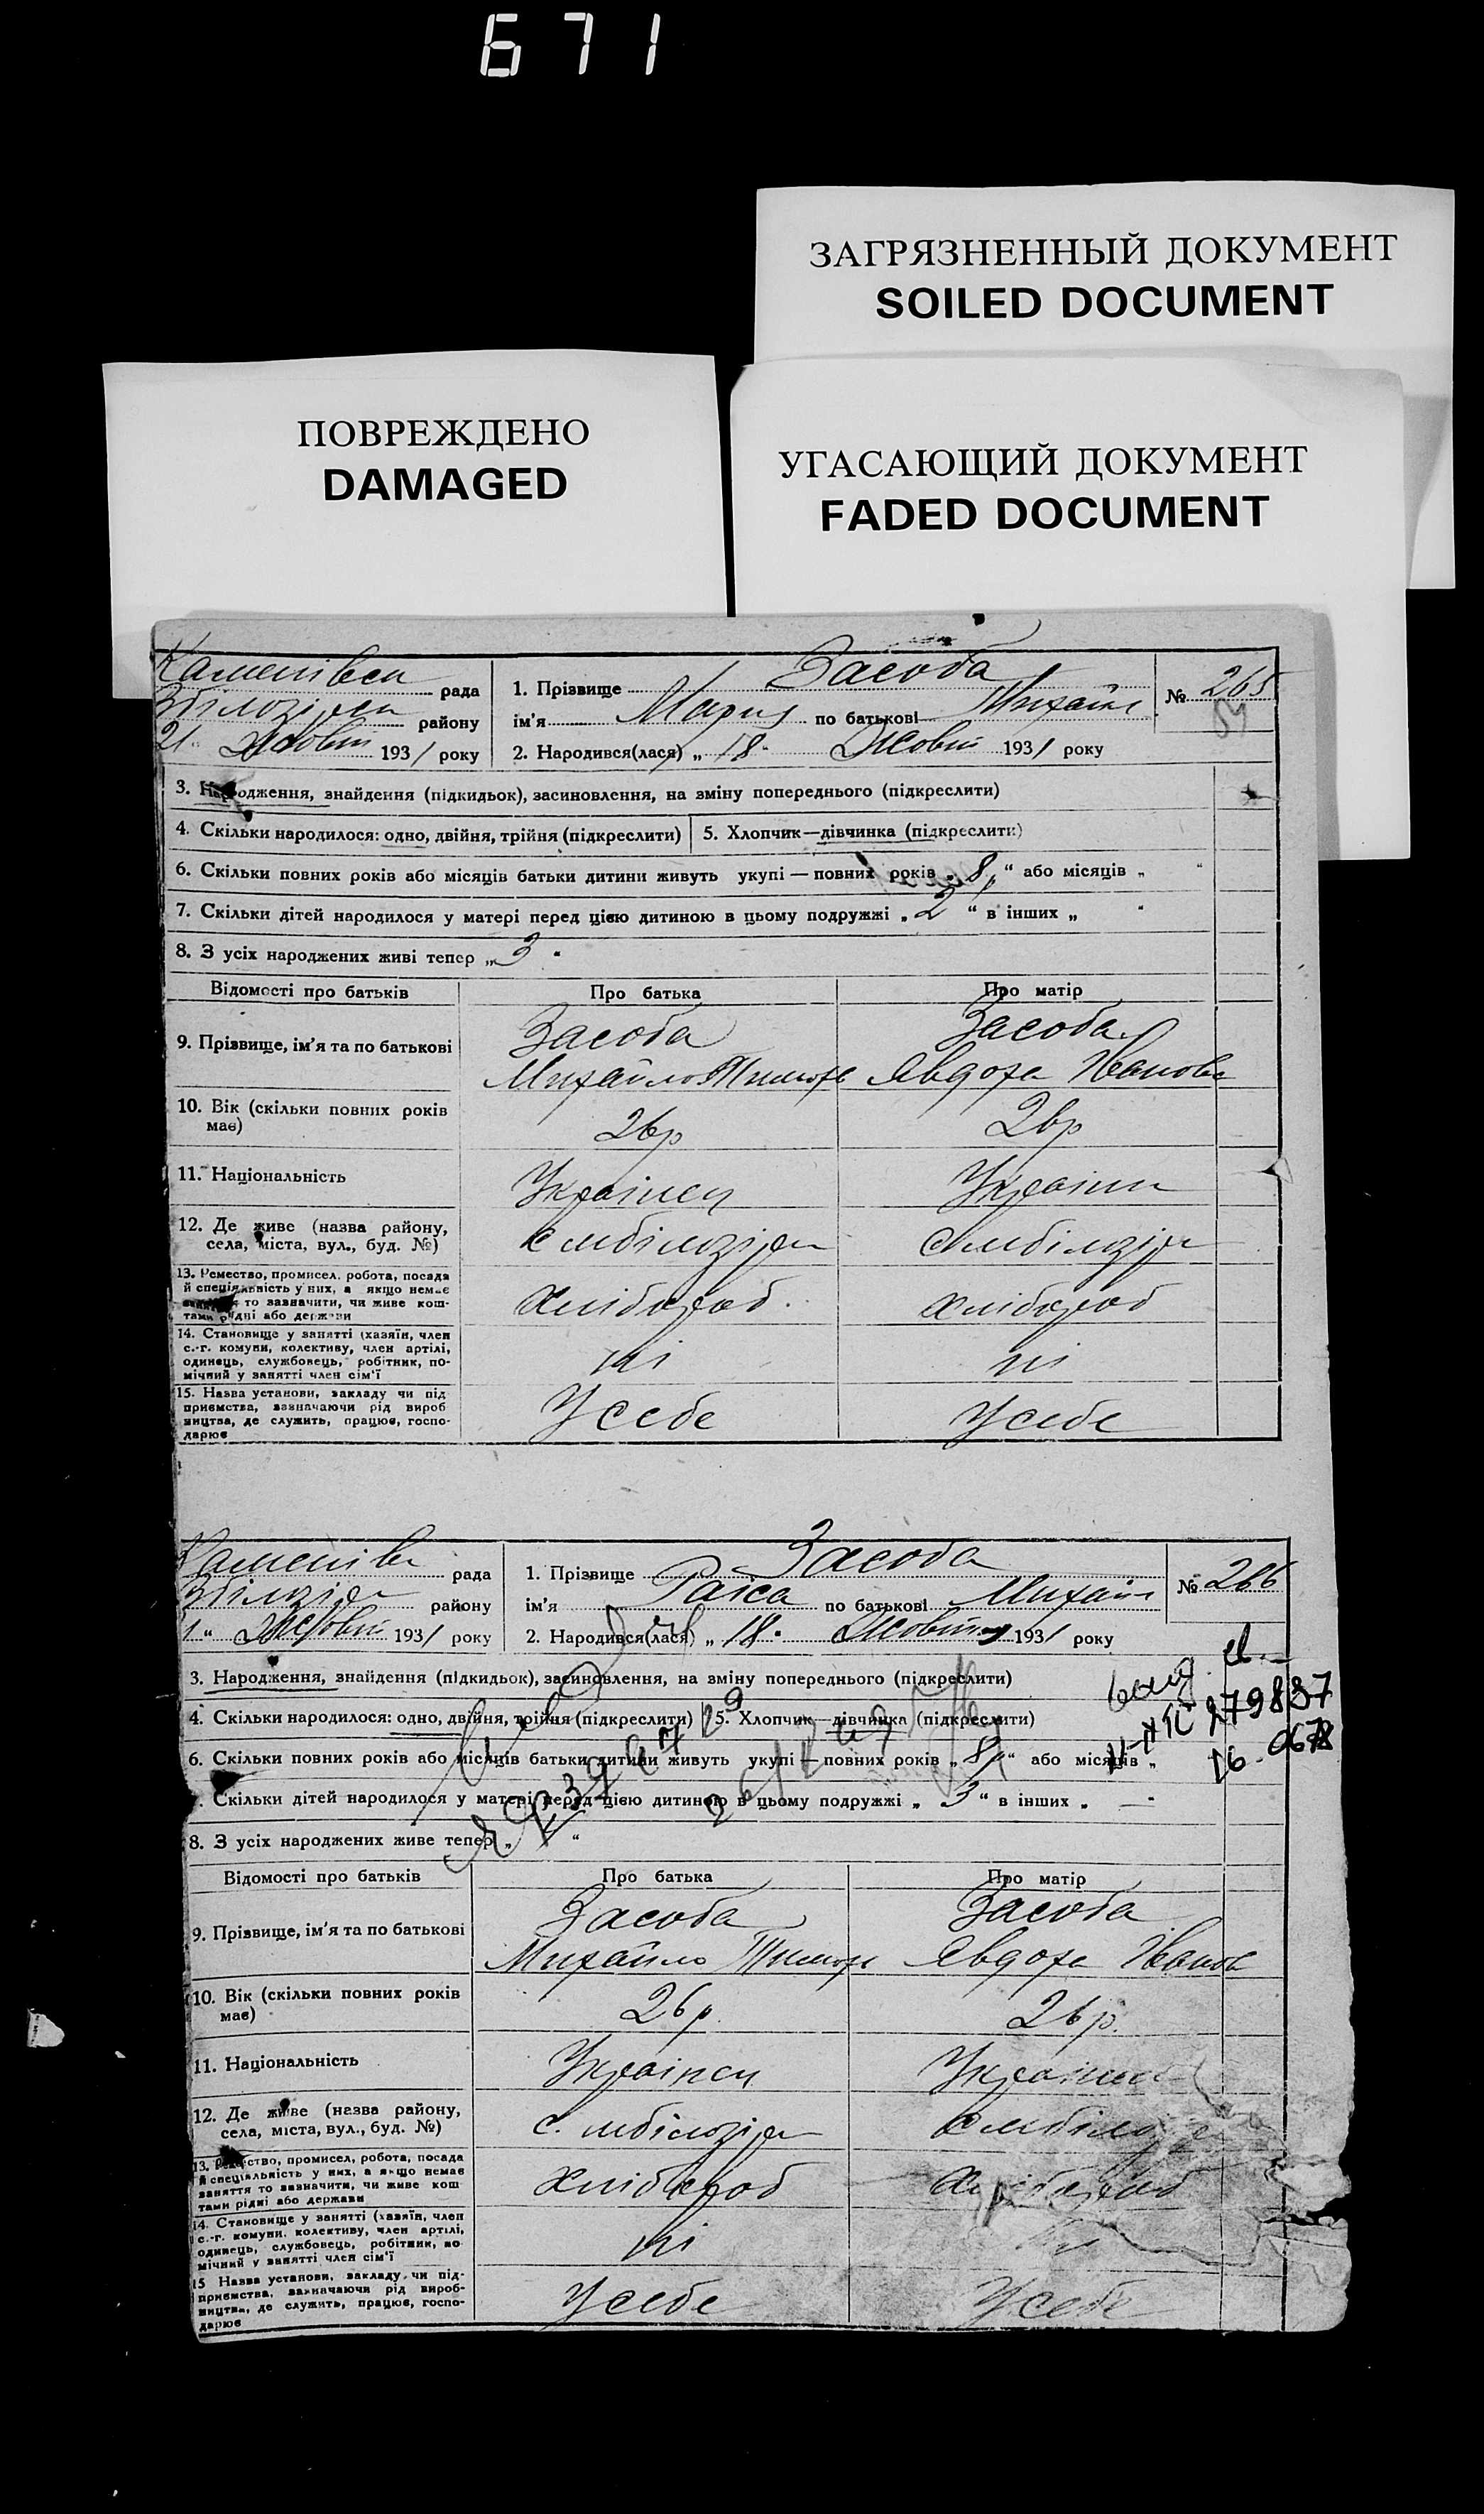 671
ЗАГРЯЗНЕННЫЙ ДОКУМЕНТ
SOILED DOCUMENT
ПОВРЕЖДЕНО
DAMAGED
УГАСАЮЩИЙ ДОКУМЕНТ
FADED DOCUMENT
рада
району
21 " Жовтн 1931 року
1. Прізвище Засоба
ім'я Мария по батькові Михайл
2. Народився(лася) „ 18 " Жовтн 1931 року
№ 265
3. Народження, знайдення (підкидьок), засиновлення, на зміну попереднього (підкреслити)
4. Скільки народилося: одно, двійня, трійня (підкреслити) 5. Хлопчик—дівчинка (підкреслити)
6. Скільки повних років або місяців батьки дитини живуть укупі — повних років „ 8 “ або місяців „ “
7. Скільки дітей народилося у матері перед цією дитиною в цьому подружжі „ 2 “ в інших „ "
8. З усіх народжених живі тепер „ 3 “
Відомості про батьків Про батька Про матір
9. Прізвище, ім'я та по батькові
Засоба Засоба
Михайло Тимоф Явдоха Іванов
10. Вік (скільки повних років має)
26р 26р
11. Національність
Українец Україн
12. Де живе (назва району, села, міста, вул., буд. №)
13. Ремество, промисел, робота, посада
й спеціяльність у них, а якщо немає
заняття то зазначити, чи живе кош-
тами рідні або держави
Хлібороб Хлібороб
14. Становище у занятті (хазяїн, член
с.-г. комуни, колективу, член артілі,
одинець, службовець, робітник, по-
мічний у занятті член сім'ї
15. Назва установи, закладу чи під
приємства, зазначаючи рід вироб
ництва, де служить, працює, госпо-
дарює
У себе У себе
рада
району
1 “ Жовтн 1931 року
1. Прізвище Засоба
ім'я Раіса по батькові Михайл
2. Народився(лася) „ 18 " Жовтн 1931 року
№ 266
3. Народження, знайдення (підкидьок), засиновлення, на зміну попереднього (підкреслити)
4. Скільки народилося: одно, двійня, трійня (підкреслити) 5. Хлопчик—дівчинка (підкреслити)
6. Скільки повних років або місяців батьки дитини живуть укупі — повних років „ 8 “ або місяців „
. Скільки дітей народилося у матері перед цією дитиною в цьому подружжі „ 3 “ в інших „ — "
8. З усіх народжених живе тепер „ “
Відомості про батьків Про батька Про матір
9. Прізвище, ім'я та по батькові
Засоба Засоба
Михайло Тимоф Явдоха Іванов
10. Вік (скільки повних років має)
26р. 26р.
11. Національність
Українец
12. Де живе (назва району, села, міста, вул., буд. №)
13. Ремество, промисел, робота, посада
й спеціальність у них, а якщо немає
заняття то зазначити, чи живе кош
тами рідні або держави
Хлібороб Хлібороб
14. Становище у занятті (хазяїн, член
с.-г. комуни, колективу, член артілі,
одинець, службовець, робітник, по
мічний у занятті член сім'ї
15 Назва установи, закладу чи під-
приємства, зазначаючи рід вироб-
ництва, де служить, працює, госпо-
дарює
У себе У себе